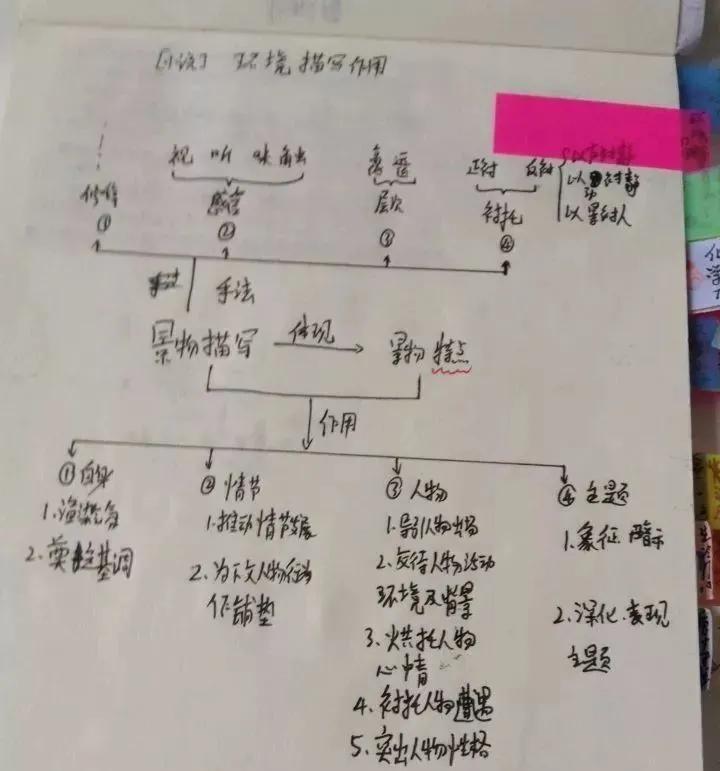 [小说] 环境描写作用
视 听 味 触
离 近
正衬 反衬
以动衬静
以景衬人
修辞 感官 层次 衬托
① ② ③ ④
手法
景物描写 体现 景物特点
作用
①自身
1.渲染气氛
2.奠定基调
② 情节
1.推动情节发展
2.为下文人物行动
作铺垫
③ 人物
1.导引人物出场
2.交待人物活动
环境及背景
3.烘托人物
心情
4.衬托人物遭遇
5.突出人物性格
④ 主题
1.象征.暗示
2.深化.表现
主题